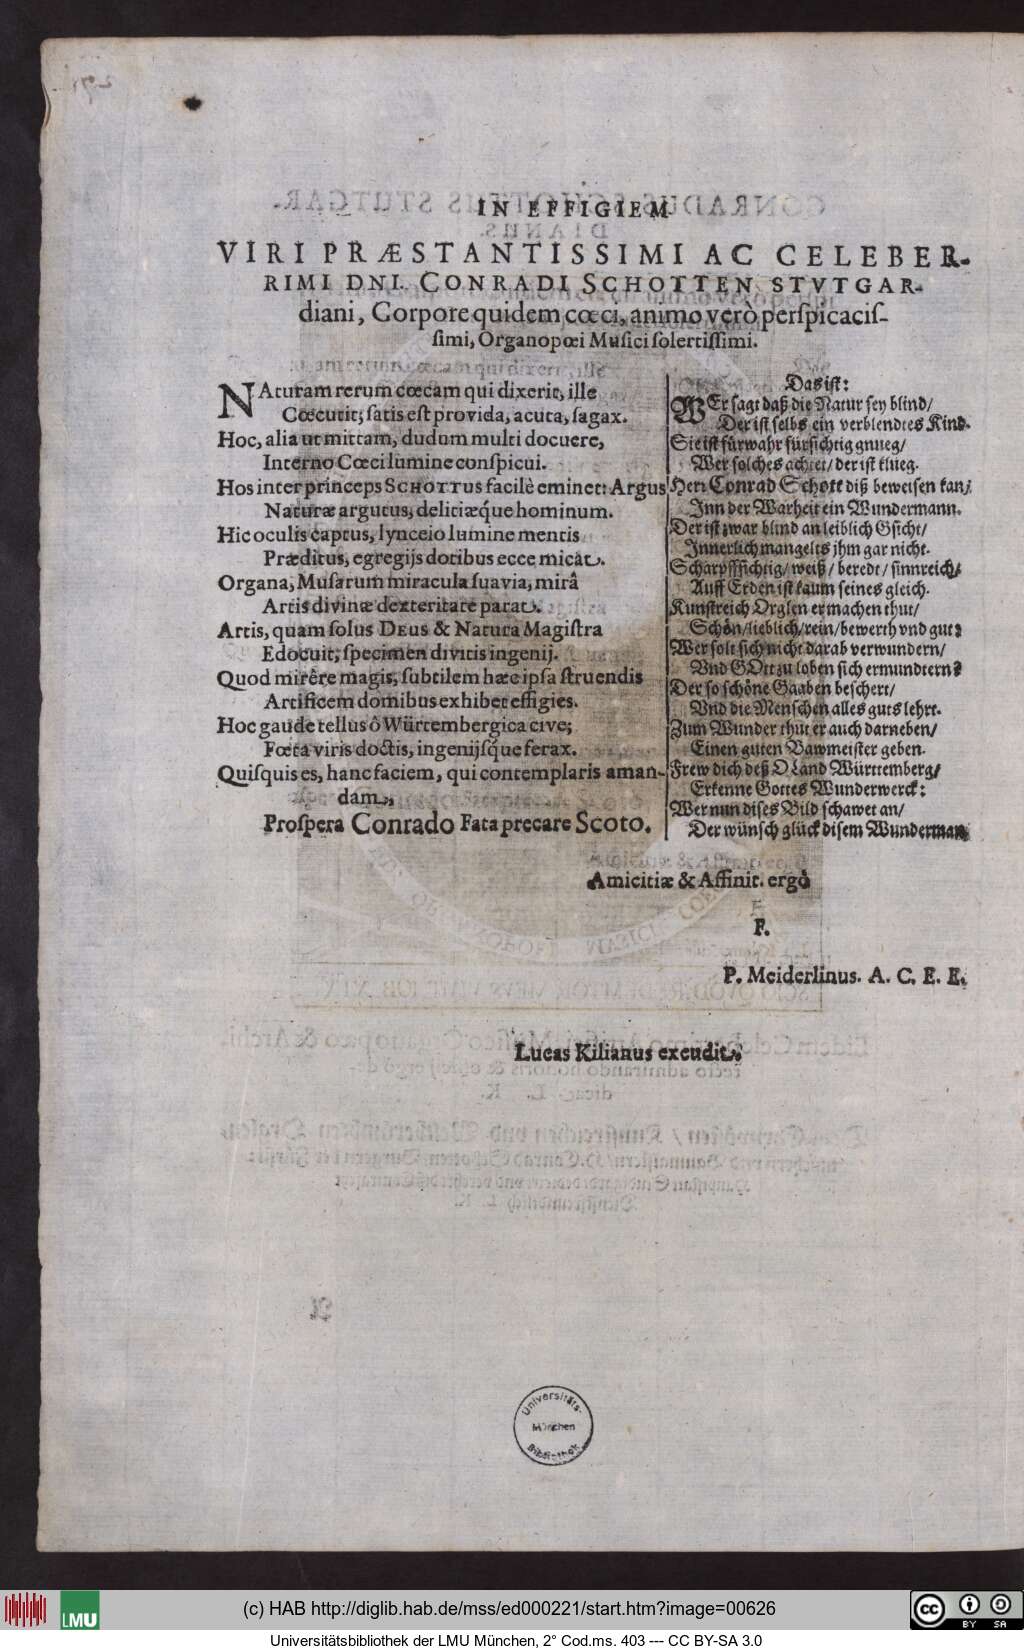 IN EFFIGIEM
VIRI PRÆSTANTISSIMI AC CELEBER-
RIMI DNI. CONRADI SCHOTTEN STVTGAR-
diani, Corpore quidem cœci, animo verò perspicacis-
simi, Organopœi Musici solertissimi.
NAturam rerum cœcam qui dixerit, ille
Cœcutit; satis est provida, acuta, sagax.
Hoc, alia ut mittam, dudum multi docuere,
Interno Cœci lumine conspicui.
Hos inter princeps SCHOTTUS facilè eminet: Argus
Naturæ argutus, delitiæque hominum.
Hic oculis captus, lynceio lumine mentis
Præditus, egregijs dotibus ecce micat.
Organa, Musarum miracula suavia, mirâ
Artis divinæ dexteritate parat.
Artis, quam solus DEUS & Natura Magistra
Edocuit; specimen divitis ingenij.
Quod mirêre magis, subtilem hæc ipsa struendis
Artificem domibus exhibet effigies.
Hoc gaude tellus ô Würtembergica cive;
Fœta viris doctis, ingenijsque ferax.
Quisquis es, hanc faciem, qui contemplaris aman-
dam,
Prospera Conrado Fata precare Scoto.
Das ist:
WEr sagt daß die Natur sey blind/
Der ist selbs ein verblendtes Kind.
Sie ist fürwahr fürsichtig gnueg/
Wer solches achtet/ der ist klueg.
Herr Conrad Schott diß beweisen kan/
Inn der Warheit ein Wundermann.
Der ist zwar blind an leiblich Gsicht/
Innerlich mangelts jhm gar nicht.
Scharpffsichtig/ weiß/ beredt/ sinnreich/
Auff Erden ist kaum seines gleich.
Kunstreich Orglen er machen thut/
Schön/ lieblich/ rein/ bewerth vnd gut:
Wer solt sich nicht darab verwundern/
Vnd GOtt zu loben sich ermundtern?
Der so schöne Gaaben beschert/
Vnd die Menschen alles guts lehrt.
Zum Wunder thut er auch darneben/
Einen guten Bawmeister geben.
Frew dich deß O Land Württemberg/
Erkenne Gottes Wunderwerck:
Wer nun dises Bild schawet an/
Der wünsch glück disem Wunderman
Amicitiæ & Affinit. ergò
F.
P. Meiderlinus. A. C. E. E.
Lucas Kilianus excudit.
Universitäts-
München
Bibliothek
LMU
(c) HAB http://diglib.hab.de/mss/ed000221/start.htm?image=00626
cc BY SA
Universitätsbibliothek der LMU München, 2° Cod.ms. 403 --- CC BY-SA 3.0